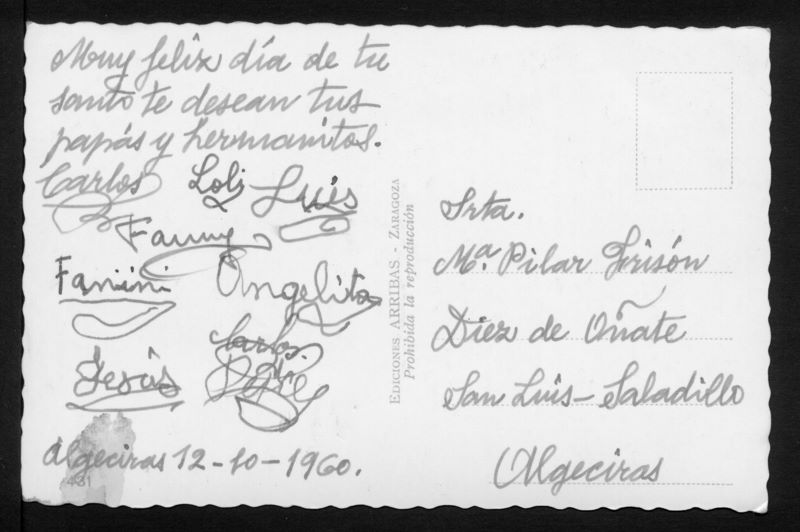 Muy feliz día de tu
santo te desean tus
papás y hermanitos.
Carlos Loli Luis
Fanny
Fanini Angelita
Carlos
Jesús
Algeciras 12-10-1960.
431
EDICIONES ARRIBAS - ZARAGOZA
Prohibida la reproducción
Srta.
Mª. Pilar Grisón
Diez de Oñate
San Luis - Saladillo
Algeciras